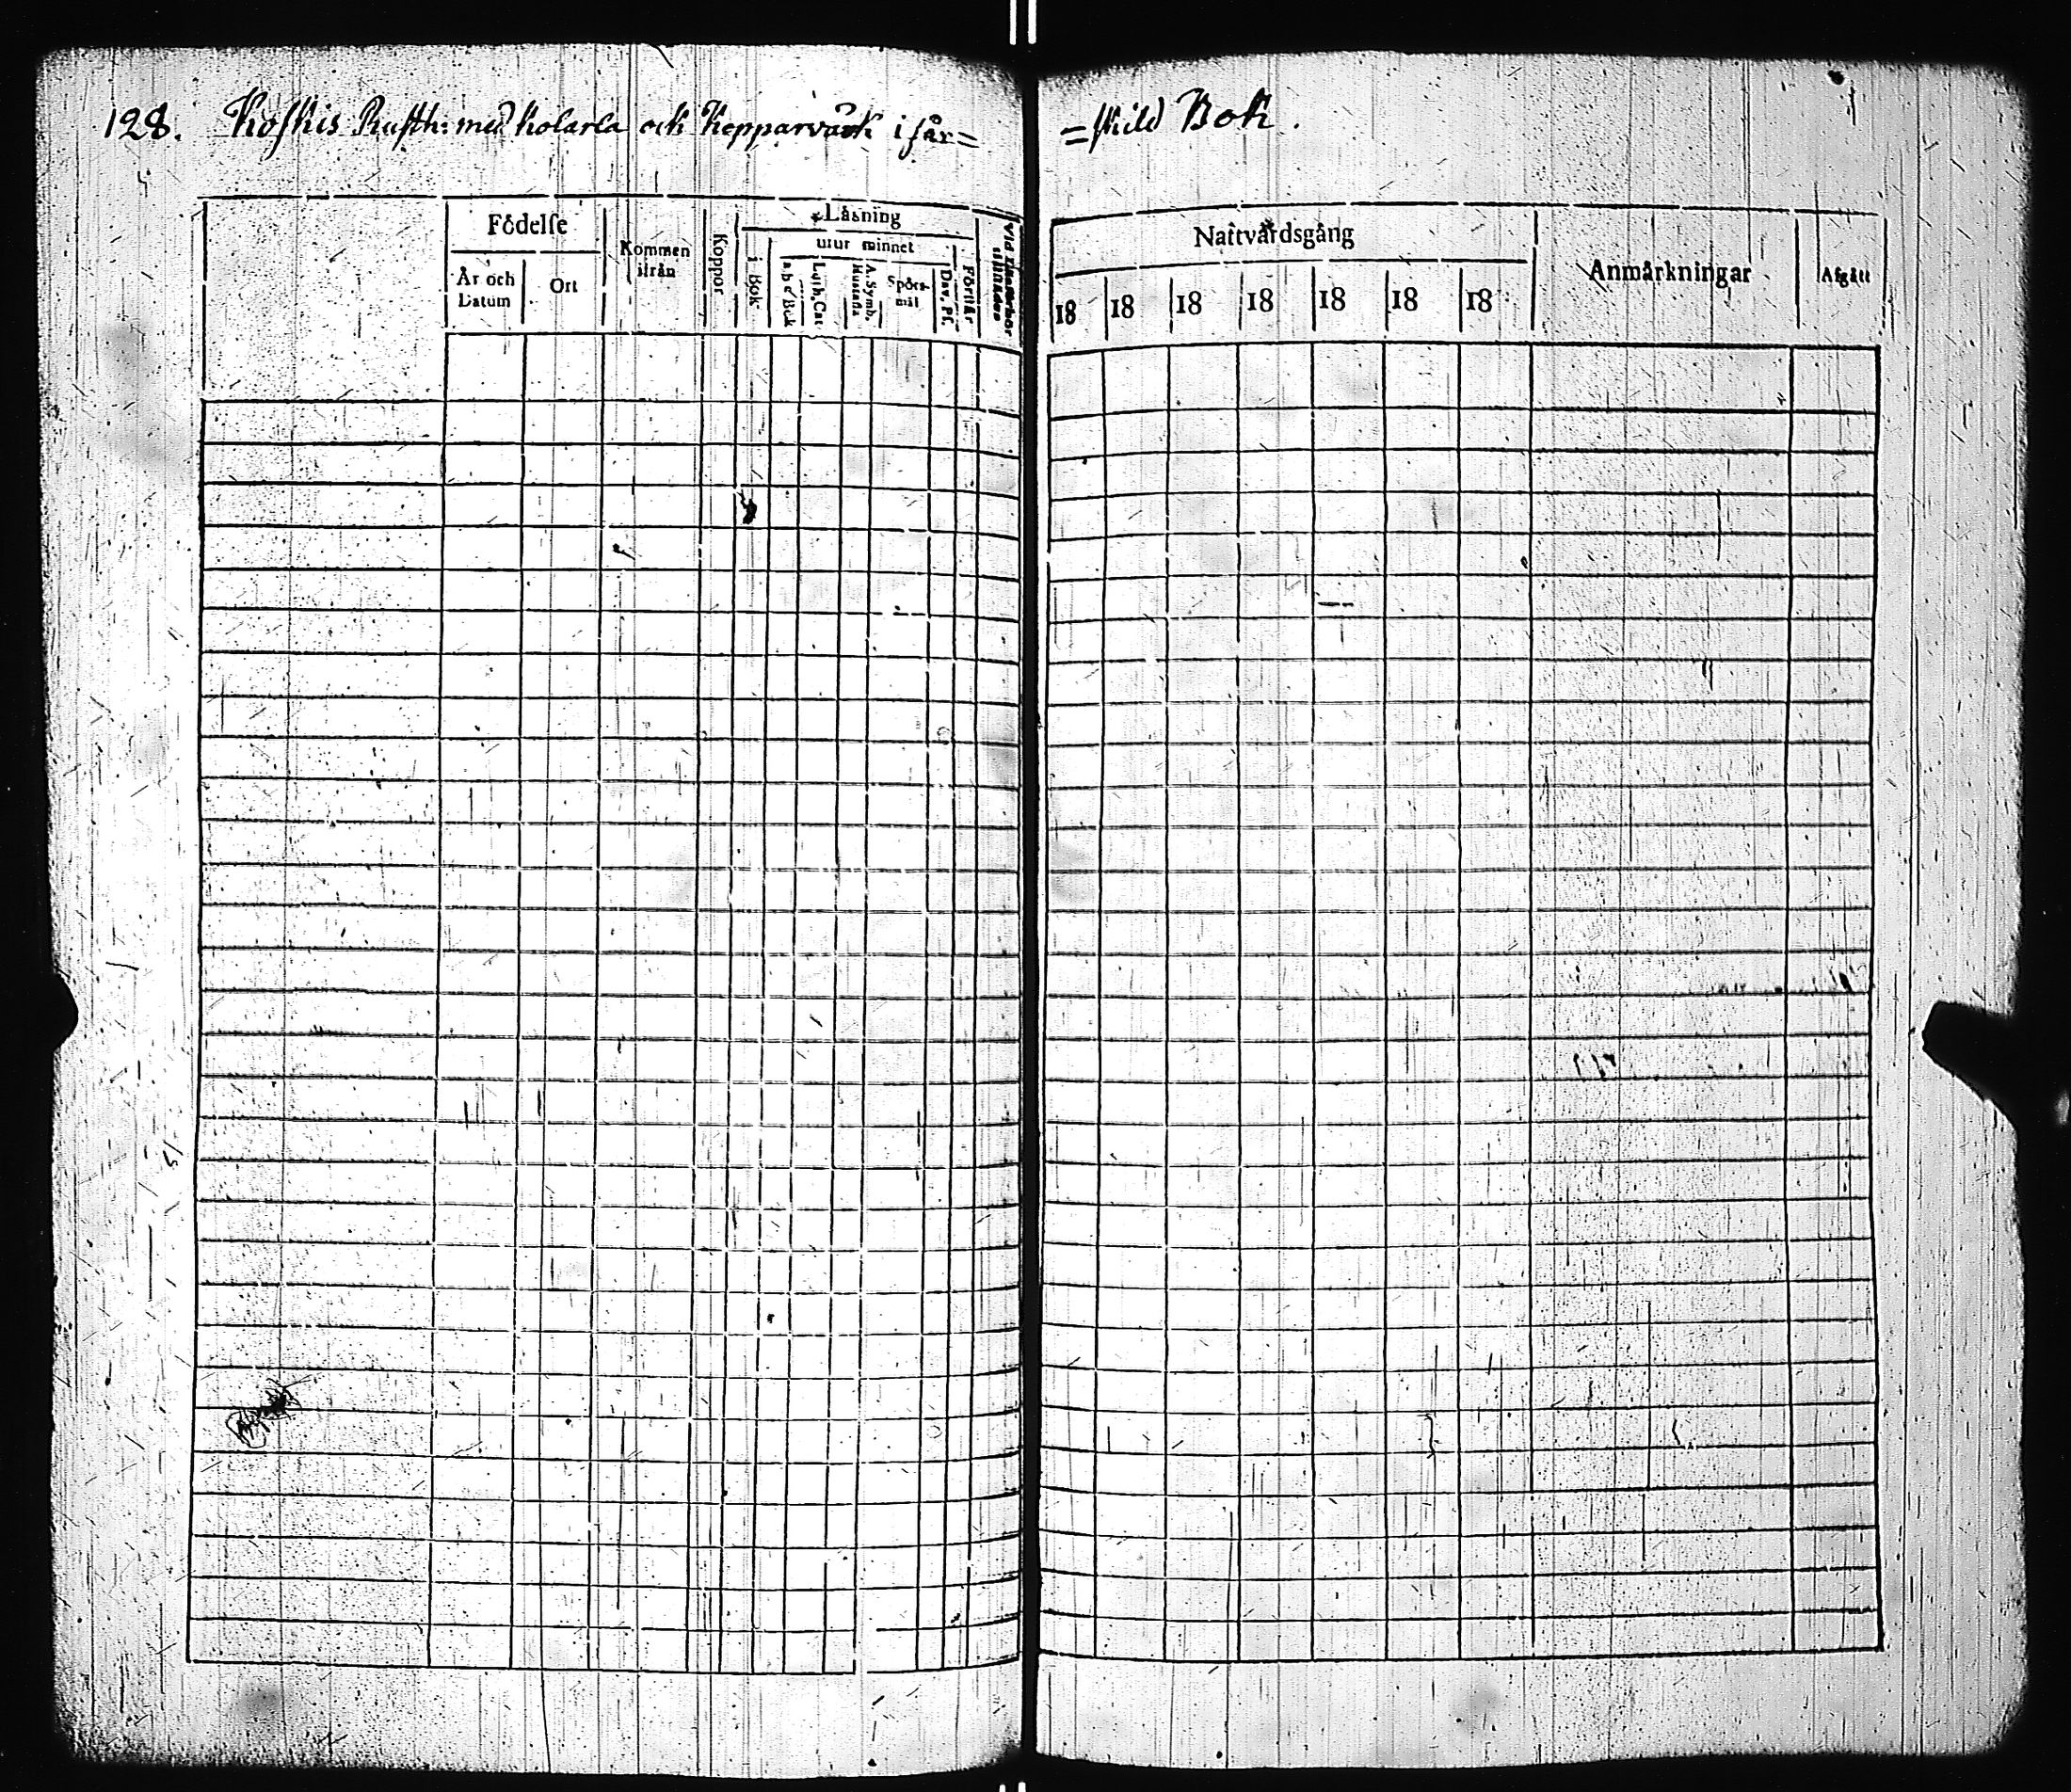 128. Koskis Rusth: med Kolarla och Kopparvärk i sär=
=skild Bok.
Födelse
Kommen ifrån
Koppor
Läsning
År och Datum
Ort
i Bok
utur minnet
a b c Bok
Luth. Cat
A. Symb.
Spörsmål
Dav. Ps.
Förstår
Nattvardsgång
Anmärkningar
Afgått
18 18 18 18 18 18 18